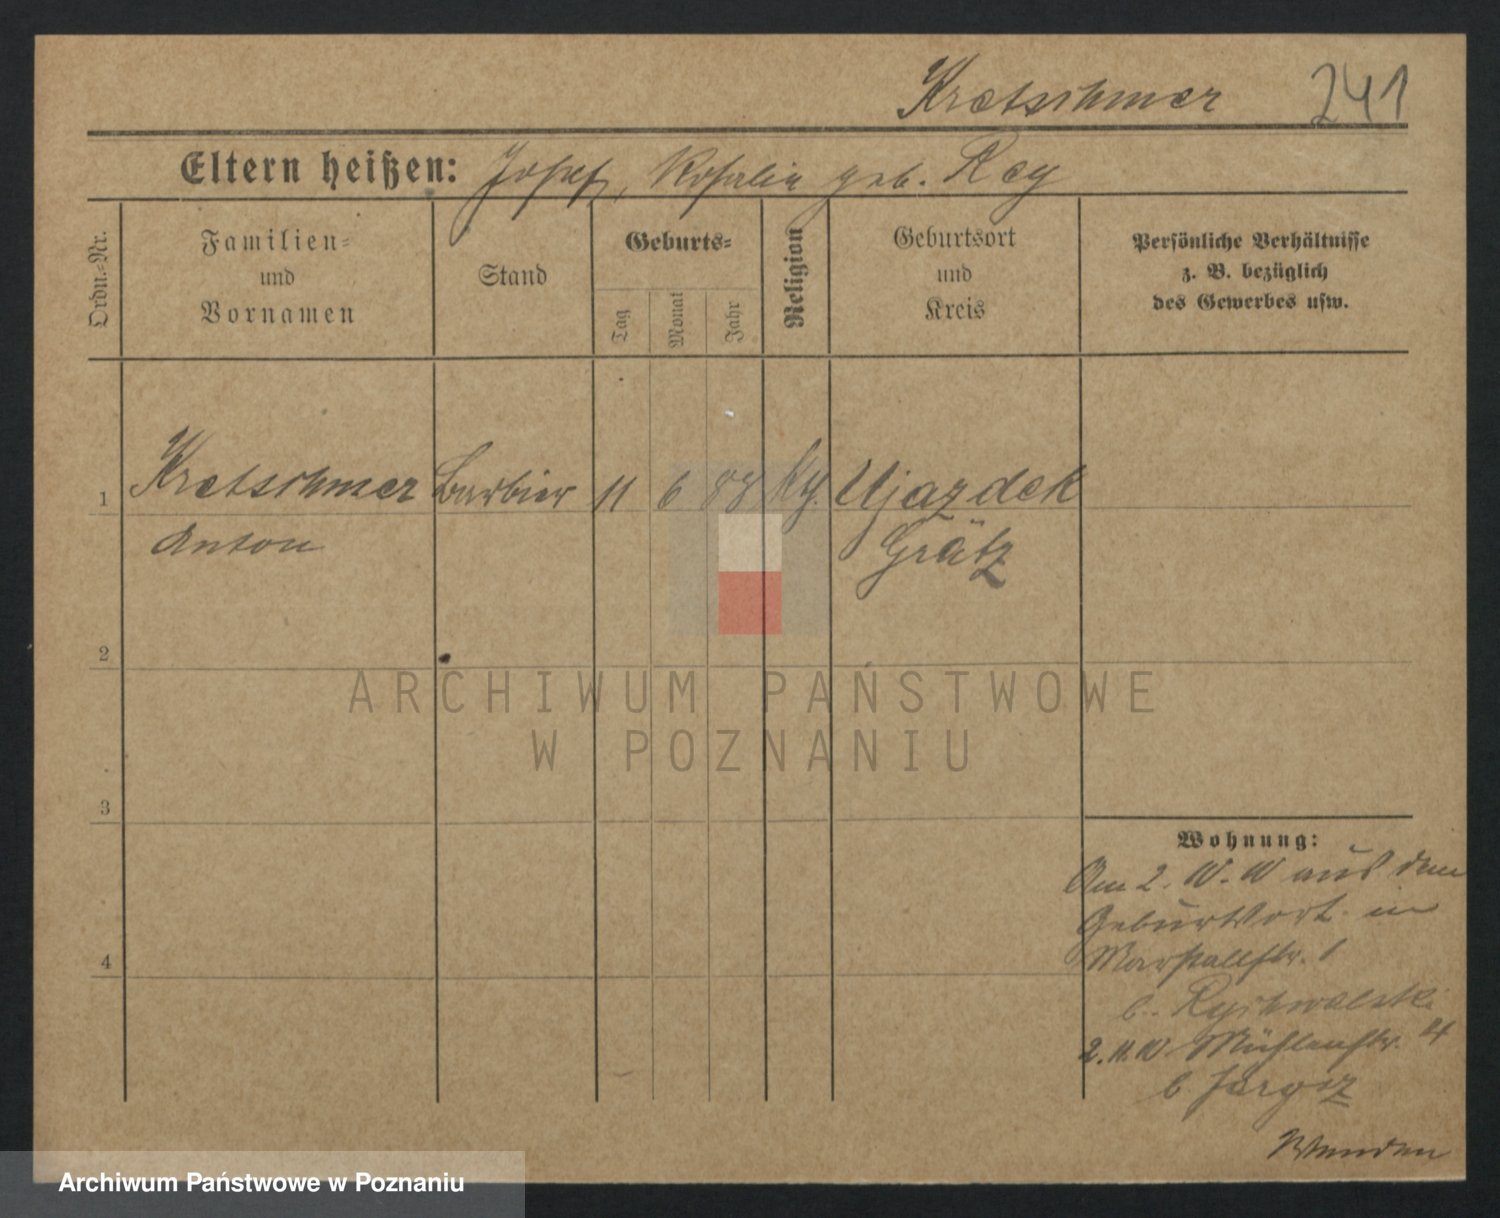 Kretschmer 241
Eltern heißen: Josef, Rosalia geb. Rey
Ordn.-Nr.
Familien-
und
Vornamen
Stand
Geburts-
Tag
Monat
Jahr
Religion
Geburtsort
und
Kreis
Persönliche Verhältnisse
z. B. bezüglich
des Gewerbes usw.
1 Kretschmer Barbier 11 6 88 Ujazdek
Anton Grätz
2
3
4
Wohnung:
Am 2. 10. 10 aus dem
Geburtsort in
Marstallstr. 1
b. Rychwalski
2. 11. 10 Mühlenstr.
b.
Wenden
ARCHIWUM PAŃSTWOWE
W POZNANIU
Archiwum Państwowe w Poznaniu